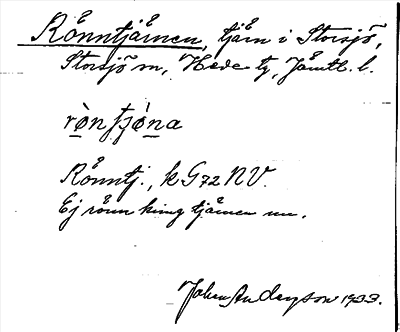 Rönntjärnen, tjärn i Storsjö,
Storsjö sn, Hede tg, Jämtl. l.
rònʃʒóna
Rönntj., k G72 NV.
Ej rönn kring tjärnen nu.
Johan Anderson 1933.